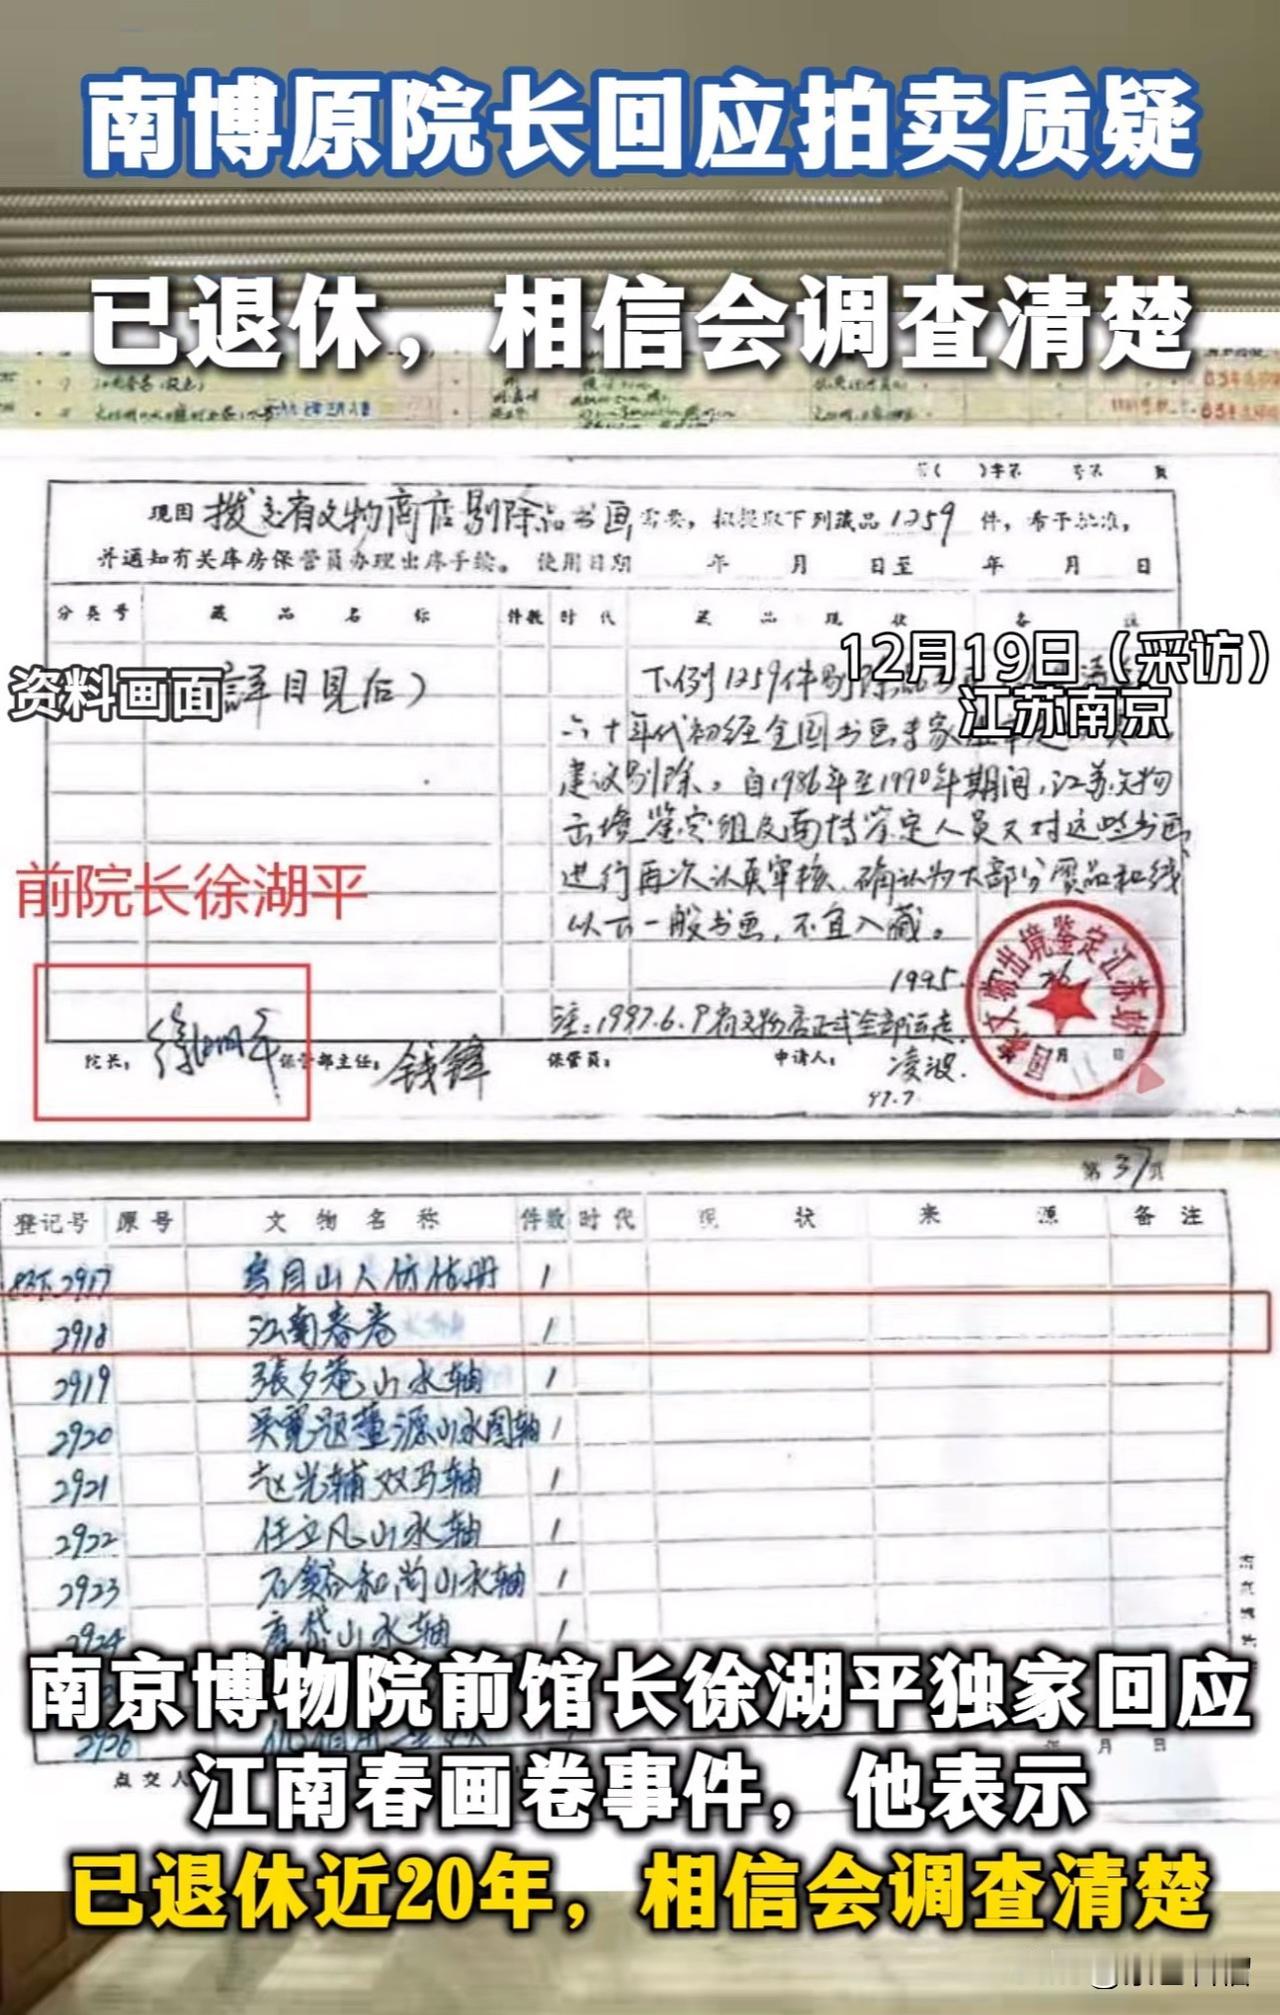 南博原院长回应拍卖质疑
已退休，相信会调查清楚
现因 拨交省文物商店剔除品书画 需要，拟提取下列藏品1259件，希予批准，
并通知有关库房保管员办理出库手续。 使用日期 年 月 日至 年 月 日
分类号 藏品名称 件数 时代 藏品现状 备注
12月19日（采访）
江苏南京
资料画面
详目见后）
下例1259件剔除品
六十年代初经全国书画专家
建议剔除。自1986年至1990年期间，江苏文物
出境鉴定组及南博鉴定人员又对这些书画
进行再次认真审核，确认为大部分赝品和线
以下一般书画，不宜入藏。
1995
注：1997.6.9省文物店正式全部运走
前院长徐湖平
院长： 徐湖平 保管部主任： 钱锋 保管员： 申请人： 凌波.
97.7
文物出境鉴定江苏站
第37页
登记号 原号 文物名称 件数 时代 现状 来源 备注
2917 1
2918 江南春卷 1
2919 张夕庵山水轴 1
2920 吴宽题董源山水图轴 1
2921 赵光辅双马轴 1
2922 任立凡山水轴 1
2923 石溪和尚山水轴 1
2924 唐岱山水轴 1
2926
年 月 日
点交人
南京博物院前馆长徐湖平独家回应
江南春画卷事件，他表示
已退休近20年，相信会调查清楚